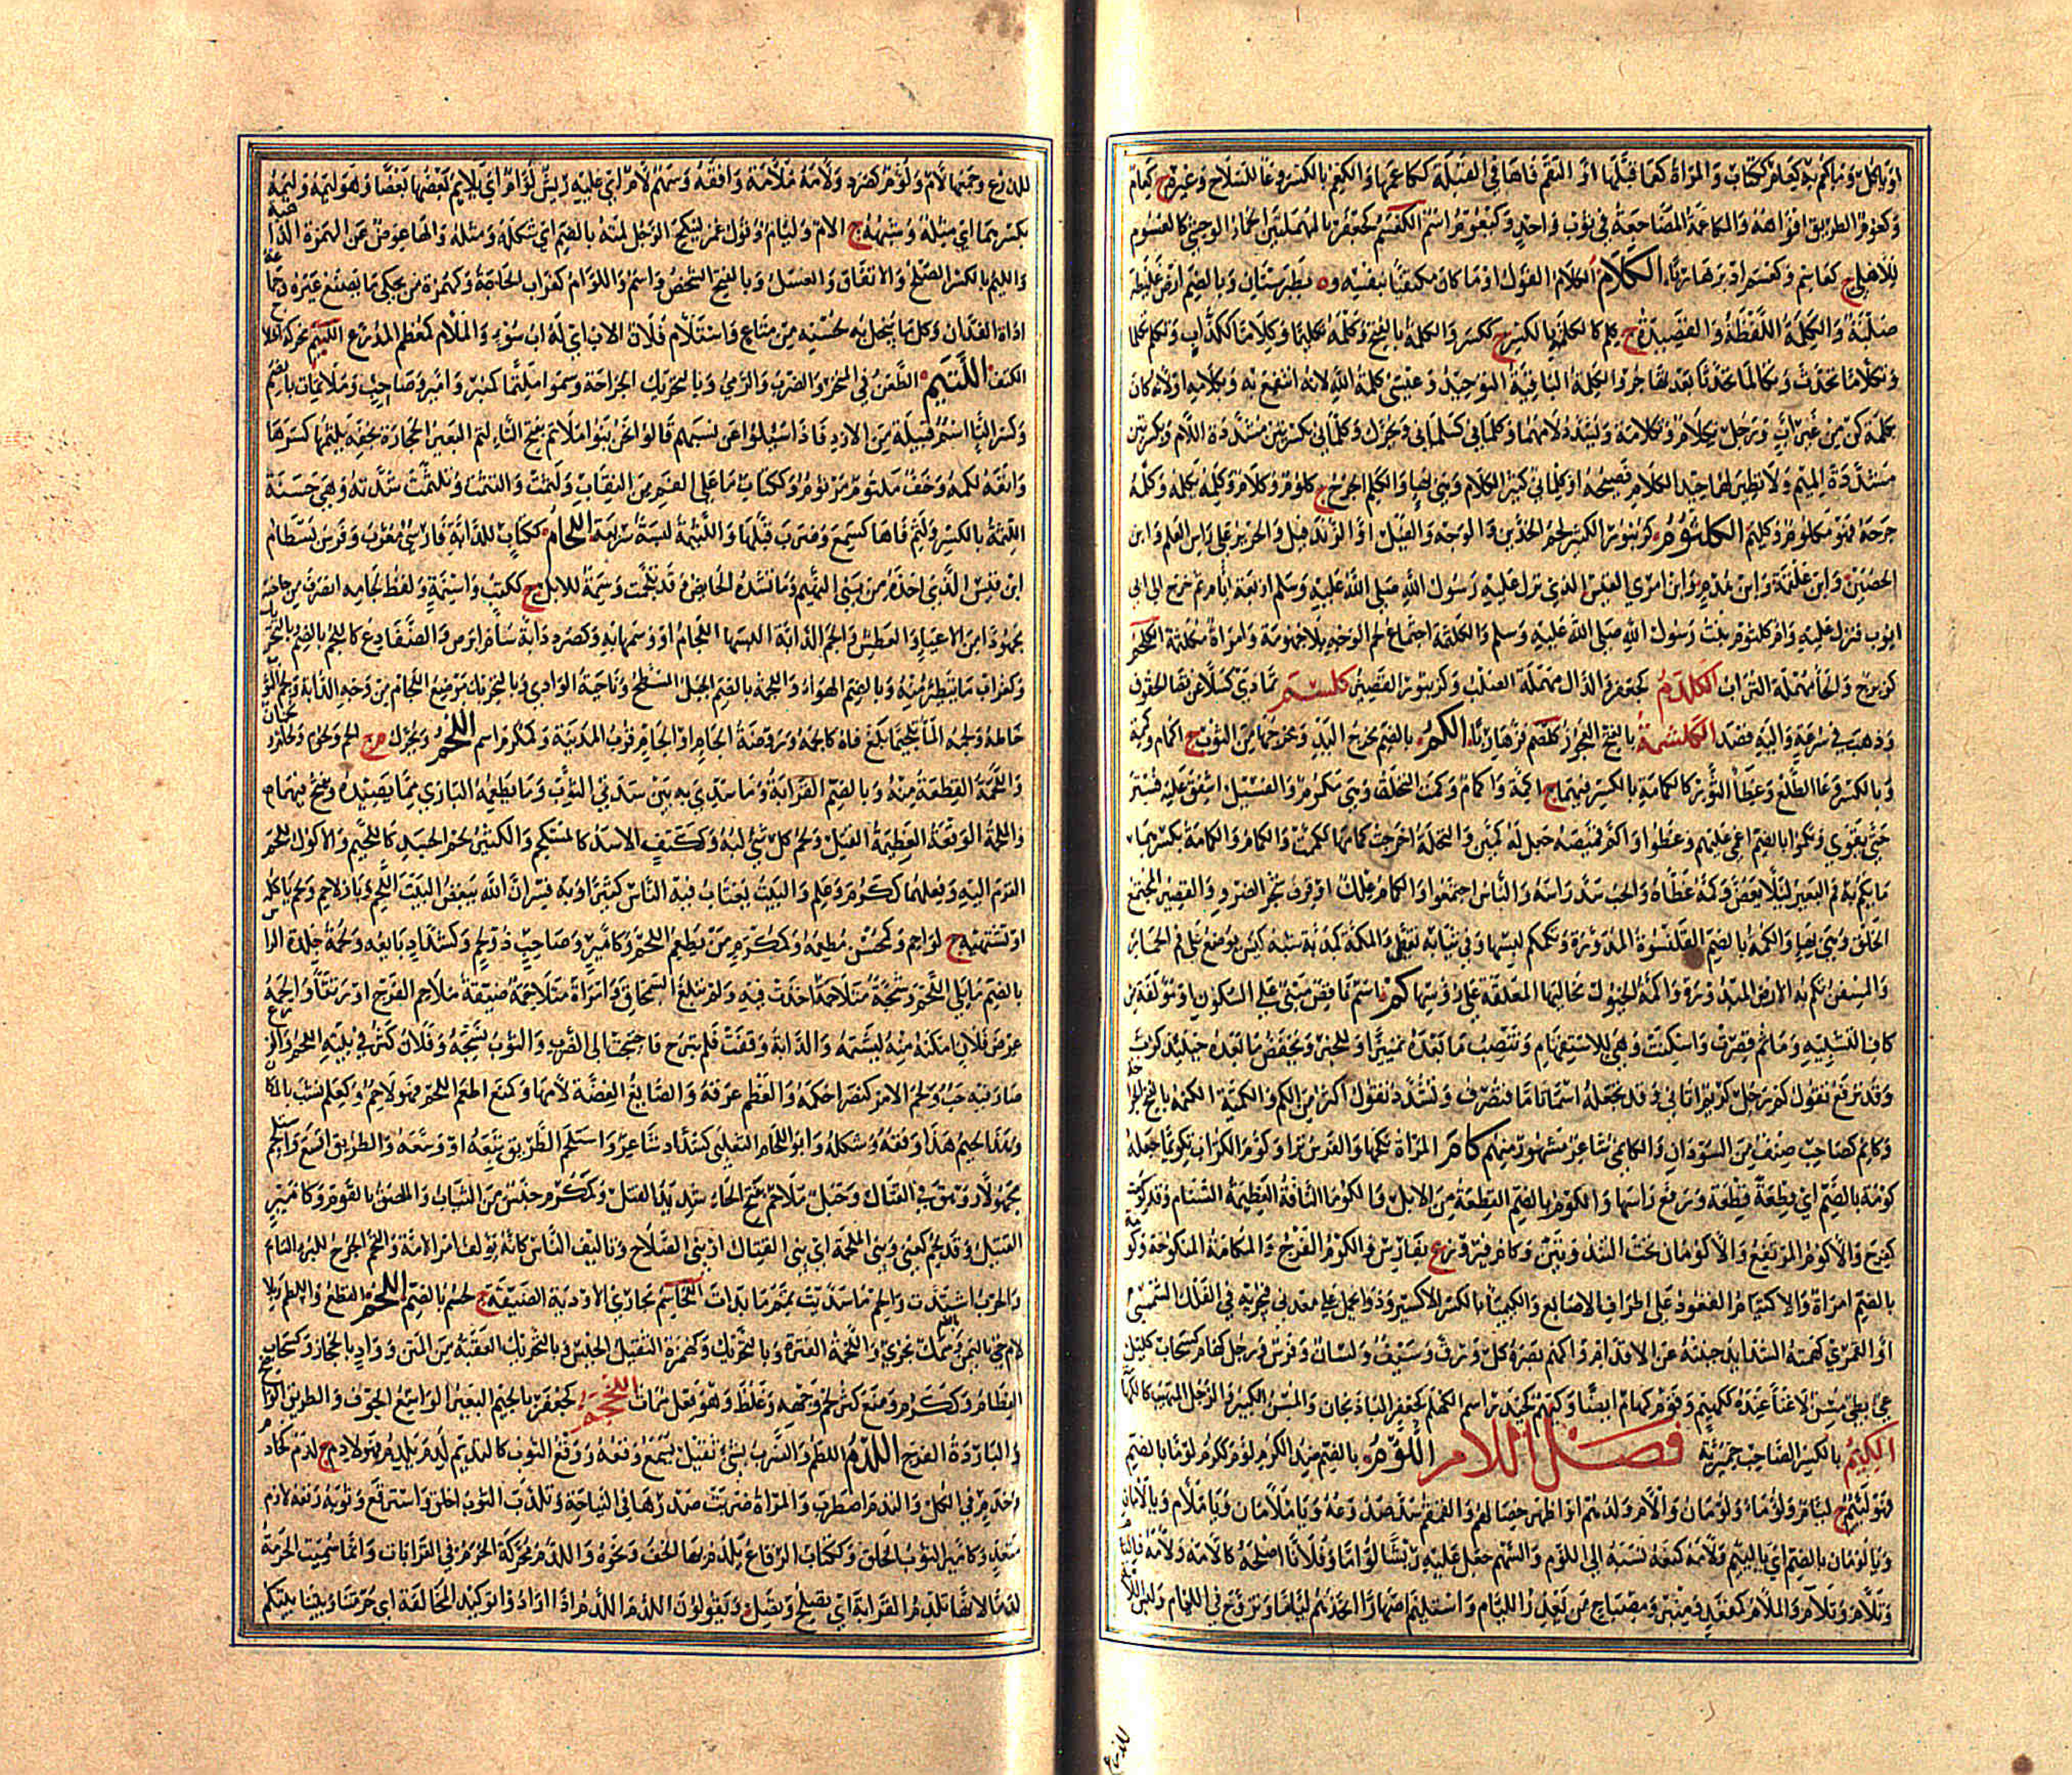 او ياكل وما كم به كعام ككتاب والمراة كعما قبلها او التقم فاها في القبلة كاكعمها والكعم بالكسر وعا للسلاح وغيره ج كعام
وكعوم الطريق افواهه والمكاعمة المضاجعة في ثوب واحد وكيعوم اسم الكعسم كجعفر بالمهملتين الحمار الوحشي كالعكسوم
للاهلي ج كعاسم وكعسم ادبر هاربا الكلام الكلام القول او ما كان مكتفيا بنفسه و ه بطبرستان وبالضم ارض غليظة
صلبة والكلمة اللفظة والقصيدة ج كلم كالكلمة بالكسر ج ككسر والكلمة بالفتح وكلمه تكليما وكلاما ككذاب وتكلم تكلما
وتكلاما تحدث وتكالما تحدثا بعد تهاجر والكلمة الباقية التوحيد وعيسى كلمة الله لانه انتفع به وبكلامه او لانه كان
بكلمة كن من غير اب ورجل تكلام وتكلامة وتشدد لامهما وكلماني كسلماني وتحرك وكلماني بكسرتين مشددة اللام وبكسرتين
مشددة الميم ولا نظير لهما جيد الكلام فصيحه او كلماني كثير الكلام وهي بهاء والكلم الجرح ج كلوم وكلام وكلمه يكلمه وكلمه
جرحه فهو مكلوم وكليم الكلثوم كزنبور الكثير لحم الخدين والوجه والفيل او الزندفيل والحرير على راس العلم وابن
الحصين وابن علقمة وابن هدم وابن امرئ القيس الذي نزل عليه رسول الله صلى الله عليه وسلم اربعة ايام ثم خرج الى ابي
ايوب فنزل عليه وام كلثوم بنت رسول الله صلى الله عليه وسلم والكلثمة اجتماع لحم الوجه بلا جهومة وامراة مكلثمة الكلحم
كزبرج والحاء مهملة التراب الكلدم كجعفر والدال مهملة الصلب وكزنبور القصير كلسم تمادى كسلا عن قضا الحقوق
وذهب في سرعة واليه قصد الكلشمة بالفتح العجوز كلصم فر هاربا الكم بالضم مدخل اليد ومخرجها من الثوب ج اكمام وكممة
وبالكسر وعا الطلع وغطا النور كالكمامة بالكسر فيهما ج اكمة واكمام وكمت النخلة وهي مكموم والفسيل اشفق عليه فستر
حتى يقوى وتكموا بالضم اغمي عليهم وغطوا واكم قميصه جعل له كمين والنخلة اخرجت كمامها ككممت والكمام والكمامة بكسرهما
ما يكم به فم البعير ليلا يعض وكمه غطاه والحب سد راسه والناس اجتمعوا والكمام علك او قرف شجر الضرو والقصير المجتمع
الخلق وهي بهاء والكمة بالضم القلنسوة المدورة وتكمكم لبسها وفي ثيابه تغطى والمكمة كمذبة شبه كيس يوضع على فم الحمار
والمسفن تكم به الارض المبذورة واكمة الخيول مخاليها المعلقة على رؤسها كم اسم ناقص مبني على السكون او مولفة من
كاف التشبيه وما ثم قصرت واسكنت وهي للاستفهام وتنصب ما بعده تمييزا وللخبر ويخفض ما بعده حينئذ كرب
وقد ترفع تقول كم رجل كريم اتاني وقد تجعله اسما تاما فتصرف وتشدد تقول اكثر من الكم والكمية الكنمة بالفتح الجراحة
وكانم كصاحب صنف من السودان والكانمي شاعر مشهور منهم كام المراة نكحها والفرس نزا وكوم التراب تكويما جعله
كومة بالضم اي قطعة قطعة ورفع راسها والكوم بالضم القطعة من الابل والكوما الناقة العظيمة السنام وقد كومت
كفرح والاكوم المرتفع والاكومان تحت الثندوتين وكام فيروز ع بفارس والكوم الفرج والمكامة المنكوحة وكومة
بالضم امراة والاكتيام القعود على اطراف الاصابع والكيمياء بالكسر الاكسير ودواء يحمل على معدني فيجريه في الفلك الشمسي
او القمري كهمته الشدايد جبنته عن الاقدام واكهم بصره كل ورق وسيف ولسان وفرس ورجل كهام كسحاب كليل
عي بطئ مسن لا غناء عنده ككهيم وقوم كهام ايضا وكيهم كحيدر اسم الكهكم كجعفر الباذنجان والمسن الكبير والرجل المتهيب كالكهكامة
الكيم بالكسر الصاحب حميرية فصل اللام اللؤم بالضم ضد الكرم لؤم ككرم لؤما بالضم
فهو لئيم ج لئام ولؤماء ولؤمان والام ولدهم او اظهر خصالهم والقمقم سد صدوعه ويا ملامان ويا ملام ويا لامان
ويا لؤمان بالضم اي يا لئيم ولامه كمنعه نسبه الى اللؤم والسهم جعل عليه ريشا لؤاما وفلانا اصلحه كالامه ولامه فالتام
وتلام وتلاءم والملام كمقعد ومنبر ومصباح من يعذر اللئام واستلام اصهارا اتخذهم لئاما وتزوج في اللئام ولبس اللامة
للدرع
للدرع وجمعها لام ولؤم كصرد ولامه ملامة وافقه وسهم لام اي عليه ريش لؤام اي يلايم بعضها بعضا وهو لئيمه ولئمه
بكسرهما اي مثله وشبهه ج الام ولئام وقول عمر لينكح الرجل لمته بالضم اي شكله ومثله والهاء عوض عن الهمزة الذاهبة
واللئم بالكسر الصلح والاتفاق والعسل وبالفتح الشخص واسم واللؤام كغراب الحاجة وكهمزة من يحكي ما يصنع غيره وجماعة
اداة الفدان وكل ما يبخل به لحسنه من متاع واستلام فلان الاب اي له اب سوء والملام كمعظم المدرع اللبم محركة اختلاج
الكتف اللتم الطعن في المنحر والضرب والرمي وبالتحريك الجراحة وسموا ملتما كمنبر وامير وصاحب وملاتمات بالضم
وكسر التاء اسم قبيلة من الازد فاذا سئلوا عن نسبهم قالوا نحن بنو ملاتم بفتح التاء لثم البعير الحجارة بخفه يلثمها كسرها
وانفه لكمه وخف ملثوم مرثوم وككتاب ما على الفم من النقاب ولثمت والتثمت وتلثمت شدته وهي حسنة
اللثمة بالكسر ولثم فاها كسمع وضرب قبلها واللثمة لبسة سريعة اللجام ككتاب للدابة فارسي معرب وفرس بسطام
ابن قيس الذي اخذه من بني الهجيم وما تشده الحايض وقد تلجمت وسمة للابل ج ككتب واسنمة ولفظ لجامه انصرف من حاجته
مجهودا من الاعياء والعطش والجم الدابة البسها اللجام او وسمها به وكصرد دابة او سام ابرص والضفادع كاللجم بالضم
وكغراب ما يتطير منه وبالضم الهواء واللجمة بالضم الجبل المسطح وناحية الوادي وبالتحريك موضع اللجام من وجه الدابة ولجم الثوب
خاطه ولجمه الماء تلجيما بلغ فاه كالجمه وروضة الجام او الجام قرب المدينة وكمكرم اسم اللحم ويحرك م ج لحم ولحوم ولحام ولحمان
واللحمة القطعة منه وبالضم القرابة وما سدي به بين سدى الثوب وما يطعمه البازي مما يصيده ويفتح فيهما
والملحمة الوقعة العظيمة القتل ولحم كل شيء لبه وككتف الاسد كالمستلحم والكثير لحم الجسد كاللحيم والاكول للحم
القرم اليه وفعلهما ككرم وعلم والبيت يغتاب فيه الناس كثيرا وبه فسر ان الله يبغض البيت اللحم وباز لاحم ولحم ياكله
او يشتهيه ج لواحم وكمحسن مطعمه وكمكرم من يطعم اللحم وكامير وصاحب ذو لحم وكشداد بايعه ولحمة جلدة الراس
بالضم ما يلي اللحم وشجة متلاحمة اخذت فيه ولم تبلغ السمحاق وامراة متلاحمة ضيقة ملاحم الفرج او رتقاء والحمه
عرض فلان امكنه منه ليشتمه والدابة وقفت فلم تبرح فاحتجت الى الضرب والثوب نسجه وفلان كثر في بيته اللحم والزرع
صار فيه حب ولحم الامر كنصر احكمه والعظم عرقه والصايغ الفضة لامها وكمنع اطعم اللحم فهو لاحم وكعلم نشب بالمكان
وهذا لحيم هذا وفقه وشكله وابو اللحام التغلبي كشداد شاعر واستلحم الطريق تبعه او وسعه والطريق اتسع واستلحم
مجهولا روهق في القتال وحبل ملاحم بفتح الحاء شديد الفتل وكمكرم جنس من الثياب والملصق بالقوم وكامير
القتيل وقد لحم كعني ونبي الملحمة اي نبي القتال او نبي الصلاح وتاليف الناس كانه يؤلف امر الامة والتحم الجرح للبرء التام
والحرب اشتدت والحم ما سديت تمم ما بدات اللحاسم مجاري الاودية الضيقة ج لحسم بالضم اللخم القطع واللطم وبلا
لام حي باليمن وسمك بحري واللخمة الفترة وبالتحريك وكهمزة الثقيل الجبس وبالتحريك العقبة من المتن وواد بالحجاز وكسحاب
العظام وككرم ومنع كثر لحم وجهه وغلظ وهو فعل ممات اللخجم كجعفر بالجيم البعير الواسع الجوف والطريق الواضح
والباردة الفرج اللدم اللطم والضرب بشيء ثقيل يسمع وقعه ورقع الثوب كالتلديم لدم يلدم فهو لادم ج لدم كخادم
وخدم في الكل والتدم اضطرب والمراة ضربت صدرها في النياحة وتلدم الثوب اخلق واسترقع وثوبه رقعه لازم
متعد وكامير الثوب الخلق وككتاب الرقاع يلدم بها الخف ونحوه واللدم محركة الحرم في القرابات وانما سميت الحرمة
لدما لانها تلدم القرابة اي تصلح وتصل ويقولون اللدم اللدم اذا ارادوا توكيد المحالفة اي حرمتنا وبيتنا بيتكم